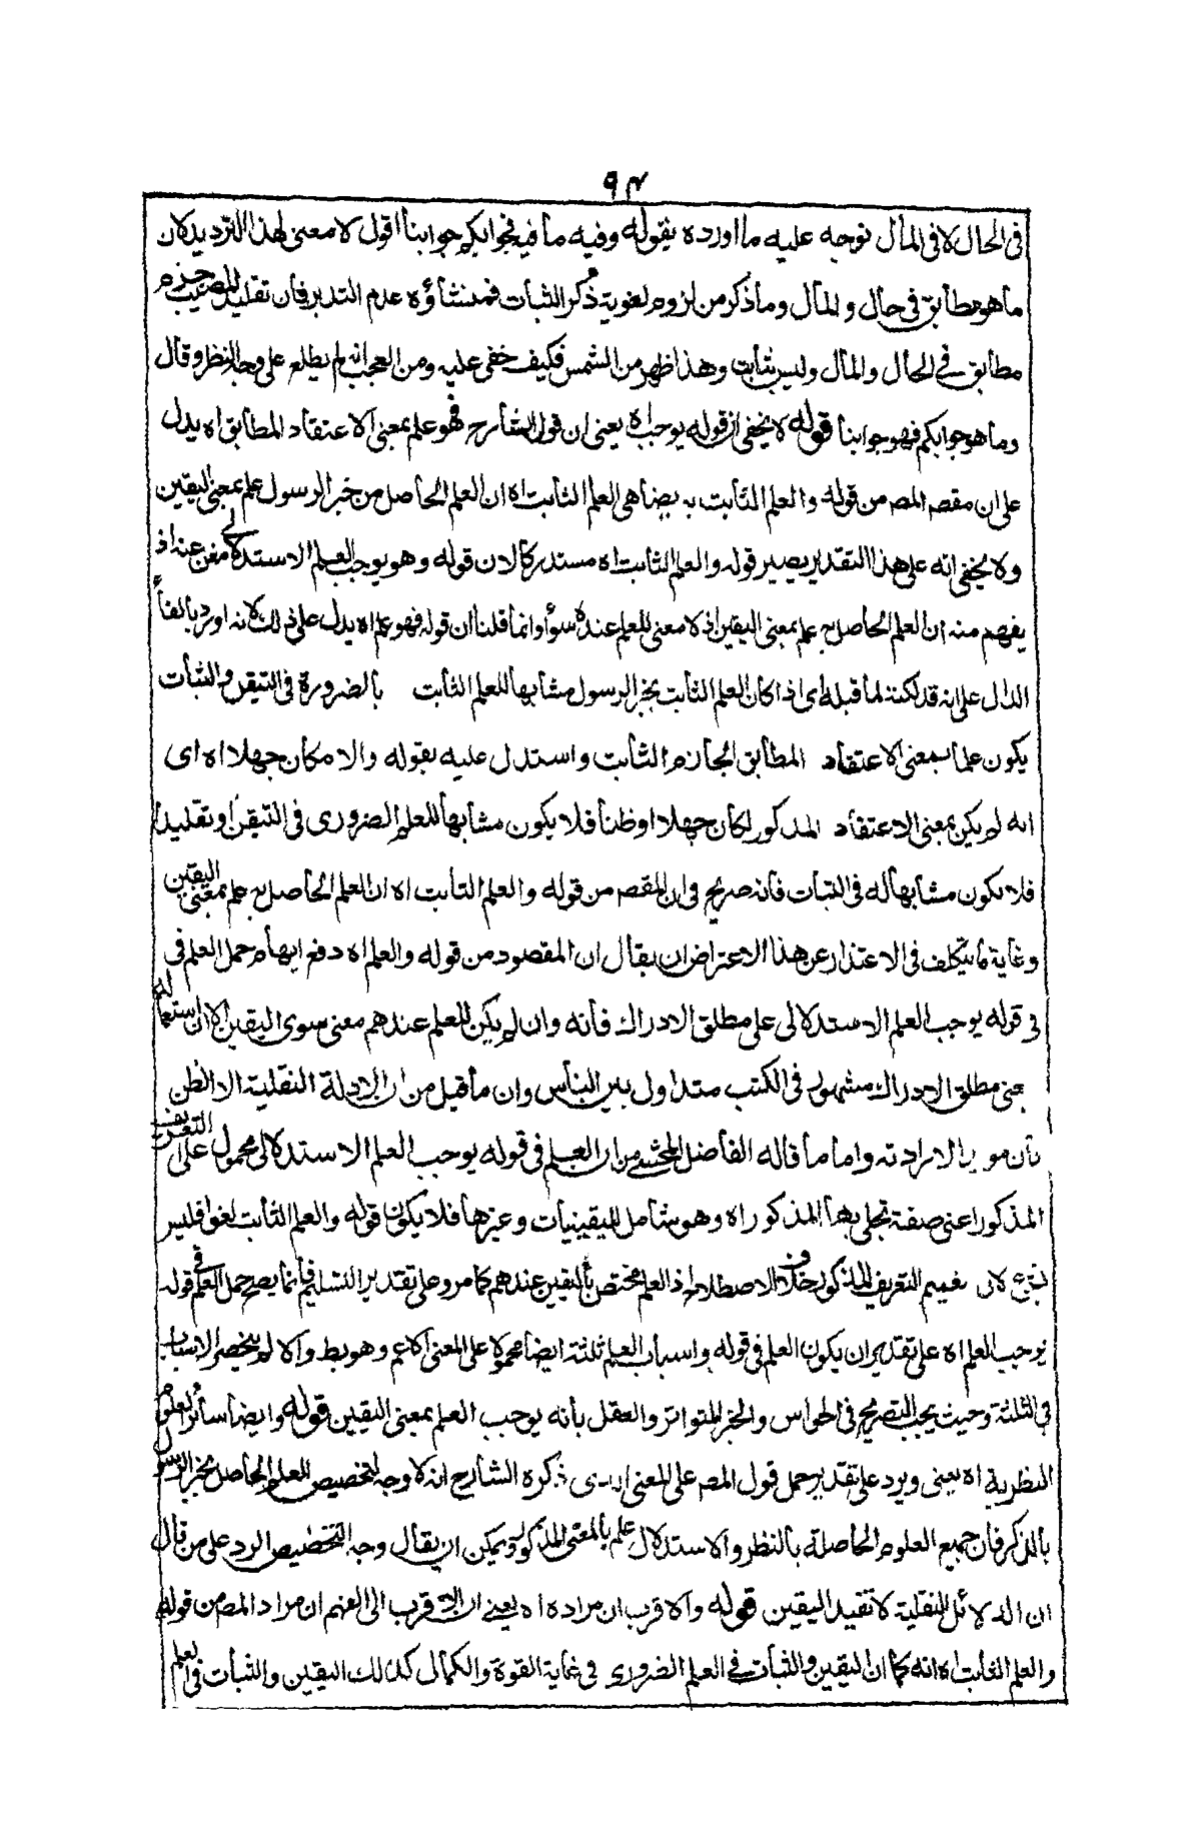 ٩٤
فى الحال لا فى المآل توجه عليه ما اورده بقوله وفيه ما فيه فجوابكم جوابنا اقول لا معنى لهذا الترديد لان
ما هو مطابق فى حال والمآل وما ذكر من لزوم لغوية ذكر الثبات فمنشاؤه عدم التدبر فان تقليد المصيب جزم
مطابق فى الحال والمآل وليس بثابت وهذا اظهر من الشمس فكيف خفى عليه ومن العجب انه لم يطلع على وجه النظر وقال
وما هو جوابكم فهو جوابنا قوله لا يخفى ان قوله يوجب اه يعنى ان قول الشارح فهو علم بمعنى الاعتقاد المطابق اه يدل
على ان مقصد المص من قوله والعلم الثابت به يضاهى العلم الثابت اه ان العلم الحاصل من خبر الرسول علم بمعنى اليقين
ولا يخفى انه على هذا التقدير يصير قوله والعلم الثابت اه مستدركا لان قوله وهو يوجب العلم الاستدلالى مغن عنه اذ
يفهم منه ان العلم الحاصل به علم بمعنى اليقين اذ لا معنى للعلم عنده سواه وانما قلنا ان قوله فهو علم اه يدل على ذلك لانه اورد بالفاء
الدال على انه فذلكة لما قبله اى اذا كان العلم الثابت بخبر الرسول مشابها للعلم الثابت بالضرورة فى التيقن والثبات
يكون علما بمعنى الاعتقاد المطابق الجازم الثابت واستدل عليه بقوله والا مكان جهلا اه اى
انه لو لم يكن بمعنى الاعتقاد المذكور لكان جهلا او ظنا فلا يكون مشابها للعلم الضرورى فى التيقن او تقليدا
فلا يكون مشابها له فى الثبات فانه صريح فى ان المقصد من قوله والعلم الثابت اه ان العلم الحاصل به علم بمعنى اليقين
وغاية ما يتكلف فى الاعتذار عن هذا الاعتراض ان يقال ان المقصود من قوله والعلم اه دفع ايهام حمل العلم فى
فى قوله يوجب العلم الاستدلالى على مطلق الادراك فانه وان لم يكن للعلم عندهم معنى سوى اليقين الا ان استعماله
بمعنى مطلق الادراك مشهور فى الكتب متداول بين الناس وان ما قيل من ان الادلة النقلية الا الظن
بان مو لارادته واما ما قاله الفاضل المحشى من ان العلم فى قوله يوجب العلم الاستدلالى محمول على التعريف
المذكور اعنى صفة تجلى بها المذكور اه وهو شامل لليقينيات وغيرها فلا يكون قوله والعلم الثابت لغوا فليس
بشئ لان تعميم التعريف المذكور خلاف الاصطلاح اذ العلم مختص باليقين عندهم كما مر وعلى تقدير التسليم فانما يصح حمل العلم فى قوله
يوجب العلم اه على تقدير ان يكون العلم فى قوله واسباب العلم ثلثة ايضا محمولا على المعنى الاعم وهو بط والا لم ينحصر الاسباب
فى الثلثة وحيث يجب التصريح فى الحواس والخبر المتواتر والعقل بانه يوجب العلم بمعنى اليقين قوله وايضا سائر العلوم
النظرية اه يعنى ويرد على تقدير حمل قول المص على المعنى الذى ذكره الشارح انه لا وجه لتخصيص العلم الحاصل بخبر الرسول
بالذكر فان جميع العلوم الحاصلة بالنظر والاستدلال علم بالمعنى المذكور ويمكن ان يقال وجه التخصيص الرد على من قال
ان الدلائل النقلية لا تفيد اليقين قوله والاقرب ان مراده اه يعنى ان الاقرب الى الفهم ان مراد المص من قوله
والعلم الثابت اه انه كما ان اليقين والثبات فى العلم الضرورى فى غاية القوة والكمال كذلك اليقين والثبات فى العلم